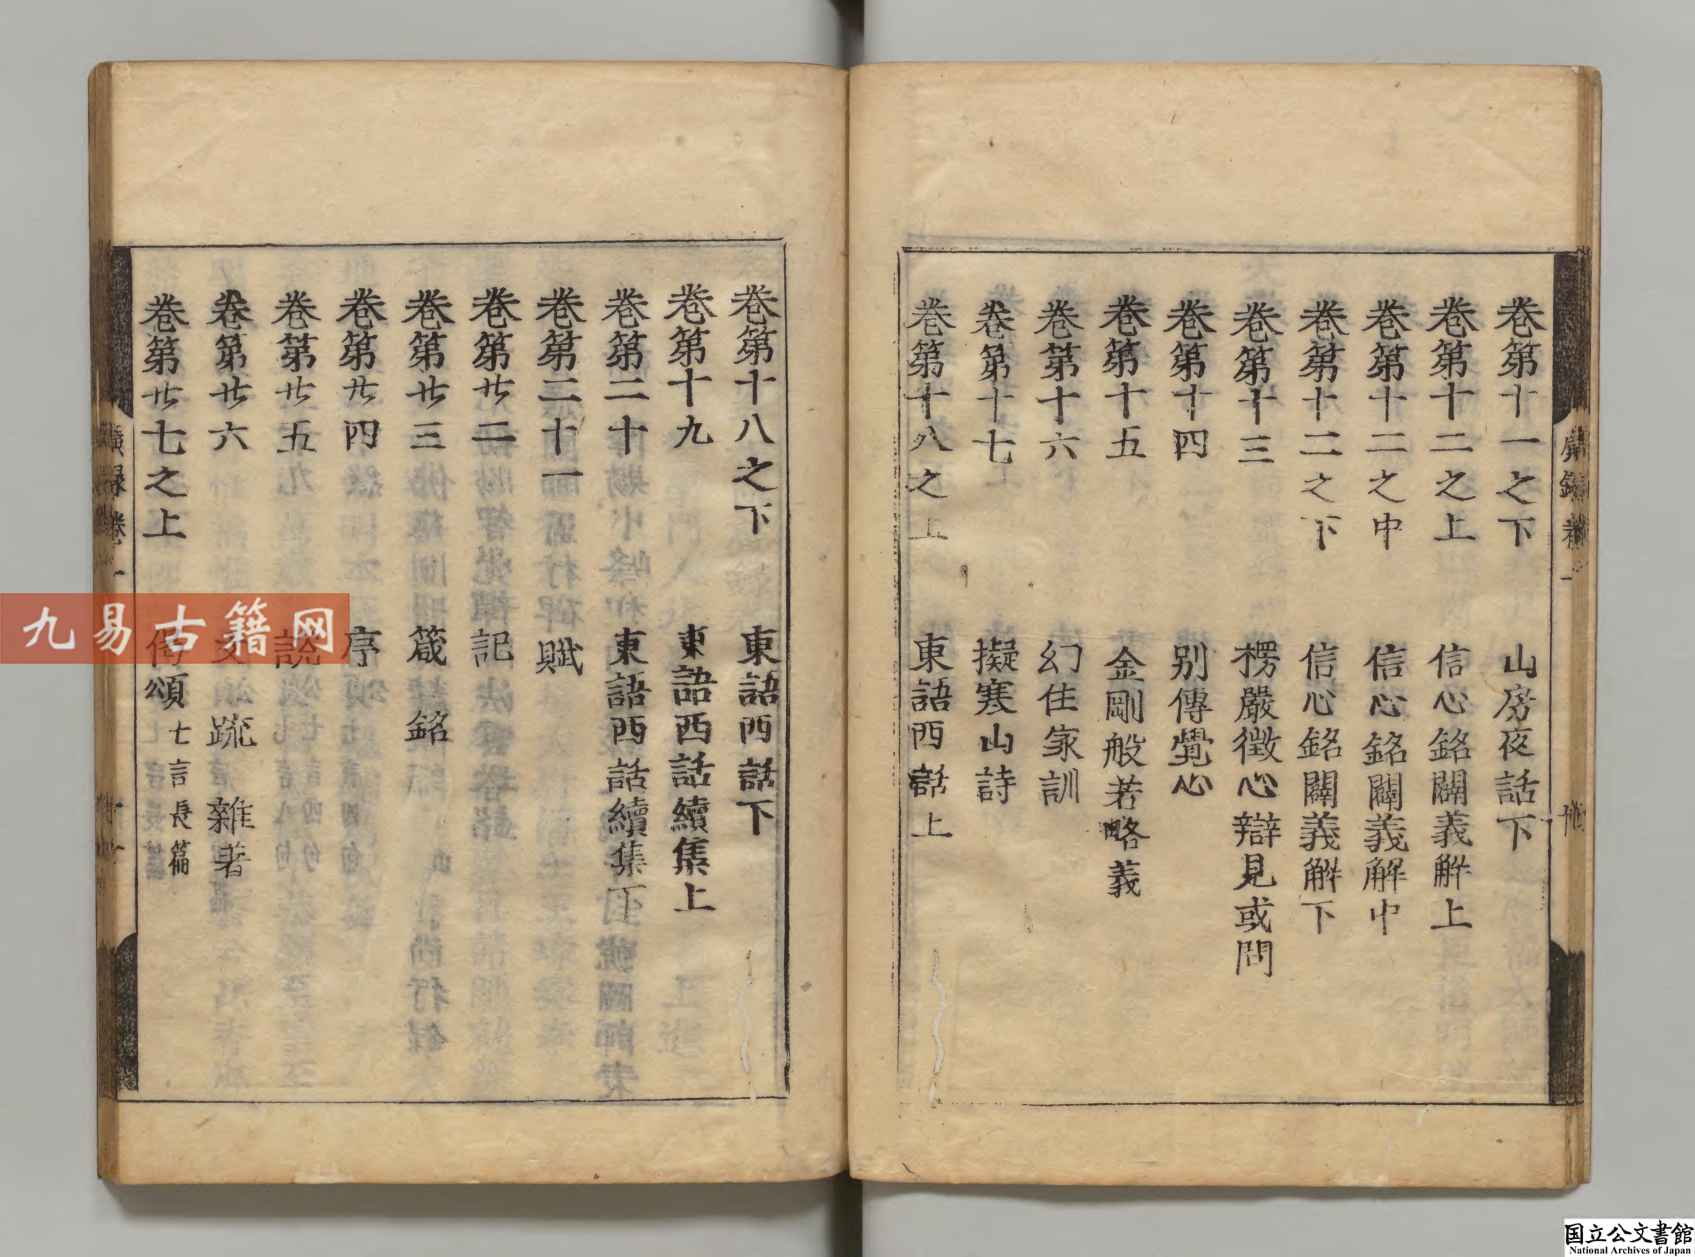 卷第十一之下　山房夜話下
卷第十二之上　信心銘闢義解上
卷第十二之中　信心銘闢義解中
卷第十二之下　信心銘闢義解下
卷第十三　楞嚴徵心辯見或問
卷第十四　别傳覺心
卷第十五　金剛般若略義
卷第十六　幻住家訓
卷第十七　擬寒山詩
卷第十八之上　東語西話上
卷第十八之下　東語西話下
卷第十九　東語西話續集上
卷第二十　東語西話續集下
卷第二十一　賦
卷第廿二　記
卷第廿三　箴銘
卷第廿四　序
卷第廿五　說
卷第廿六　文　疏　雜著
卷第廿七之上　偈頌七言長篇
廣錄卷一
九易古籍网
国立公文書館
National Archives of Japan